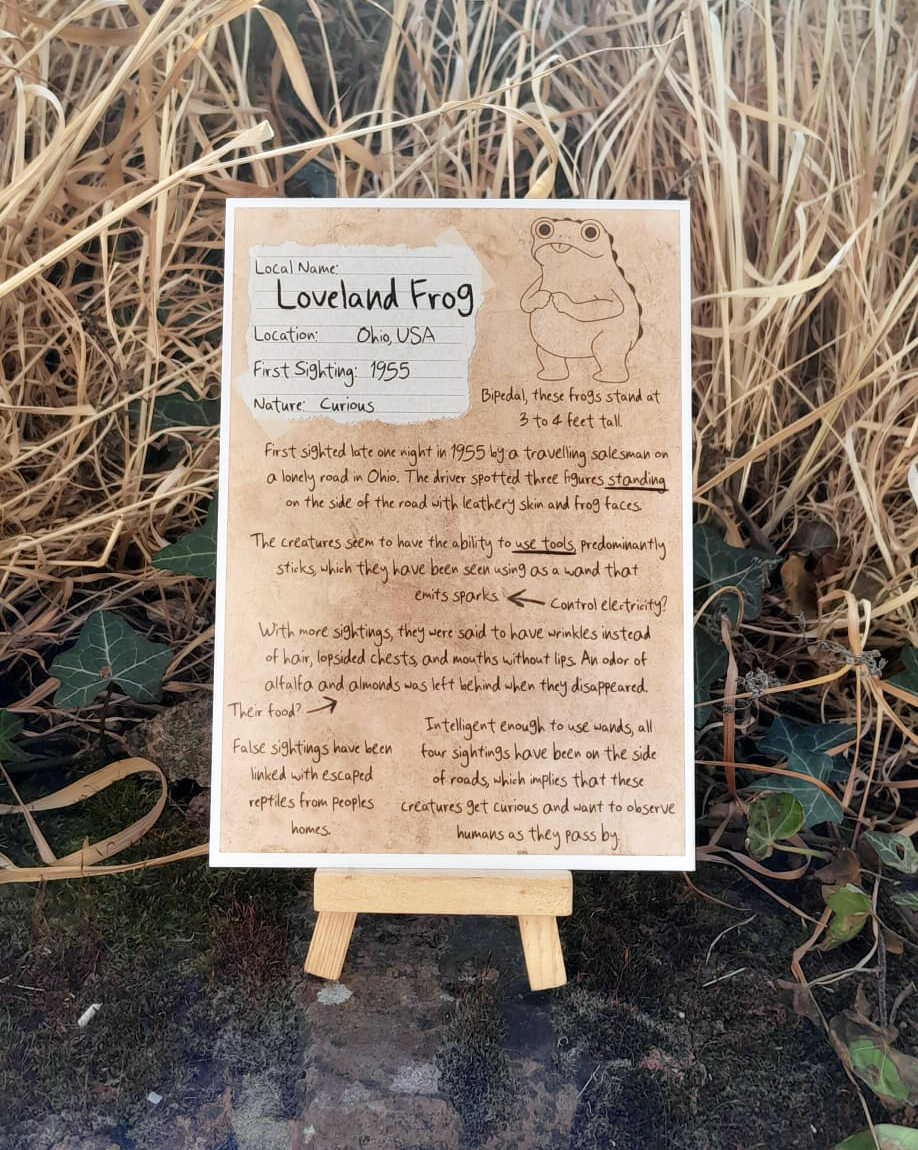 Local Name:
Loveland Frog
Location: Ohio, USA
First Sighting: 1955
Nature: Curious
Bipedal, these frogs stand at
3 to 4 feet tall.
First sighted late one night in 1955 by a travelling salesman on
a lonely road in Ohio. The driver spotted three figures standing
on the side of the road with leathery skin and frog faces.
The creatures seem to have the ability to use tools, predominantly
sticks, which they have been seen using as a wand that
emits sparks.
Control electricity?
With more sightings, they were said to have wrinkles instead
of hair, lopsided chests, and mouths without lips. An odor of
alfalfa and almonds was left behind when they disappeared.
Their food?
False sightings have been
linked with escaped
reptiles from peoples
homes.
Intelligent enough to use wands, all
four sightings have been on the side
of roads, which implies that these
creatures get curious and want to observe
humans as they pass by.